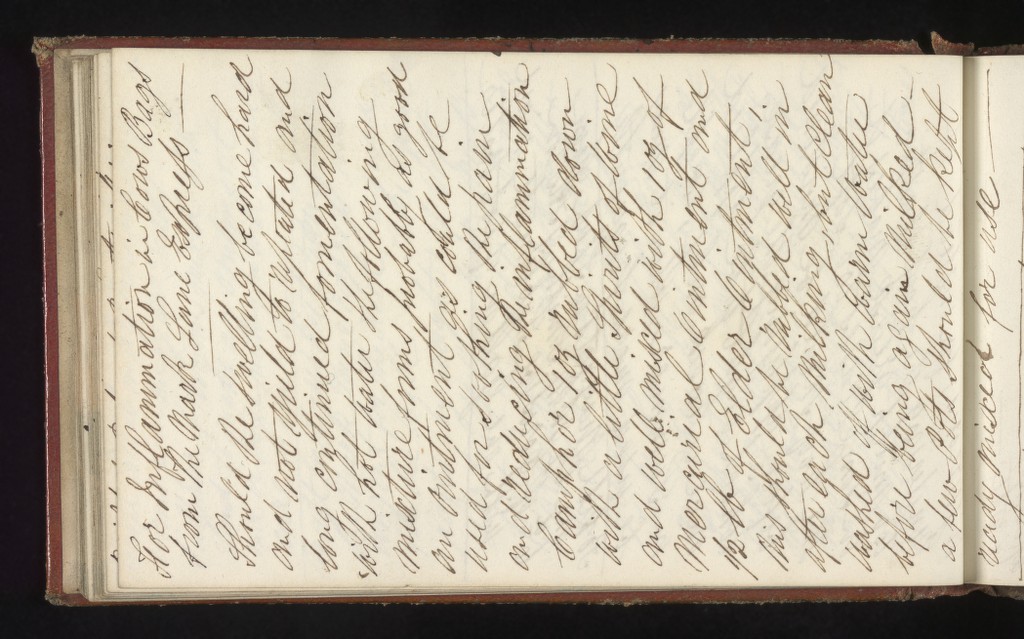 For Inflammation in Cows Bags
from the Mark Lane Express
Should the swelling become hard
and not yield to repeated and
long continued fomentation
with hot water the following
mixture forms probably as good
an ointment as could be
used for soothing the pain
and reducing the inflammation
Camphor 1oz rubbed down
with a little Spirits of Wine
and well mixed with 1oz of
Mercurial Ointment and
½ lb of Elder Ointment,
this should be rubbed well in
after each milking, but clean
washed off with warm water
before being again milked
a few ozs should be kept
ready mixed for use